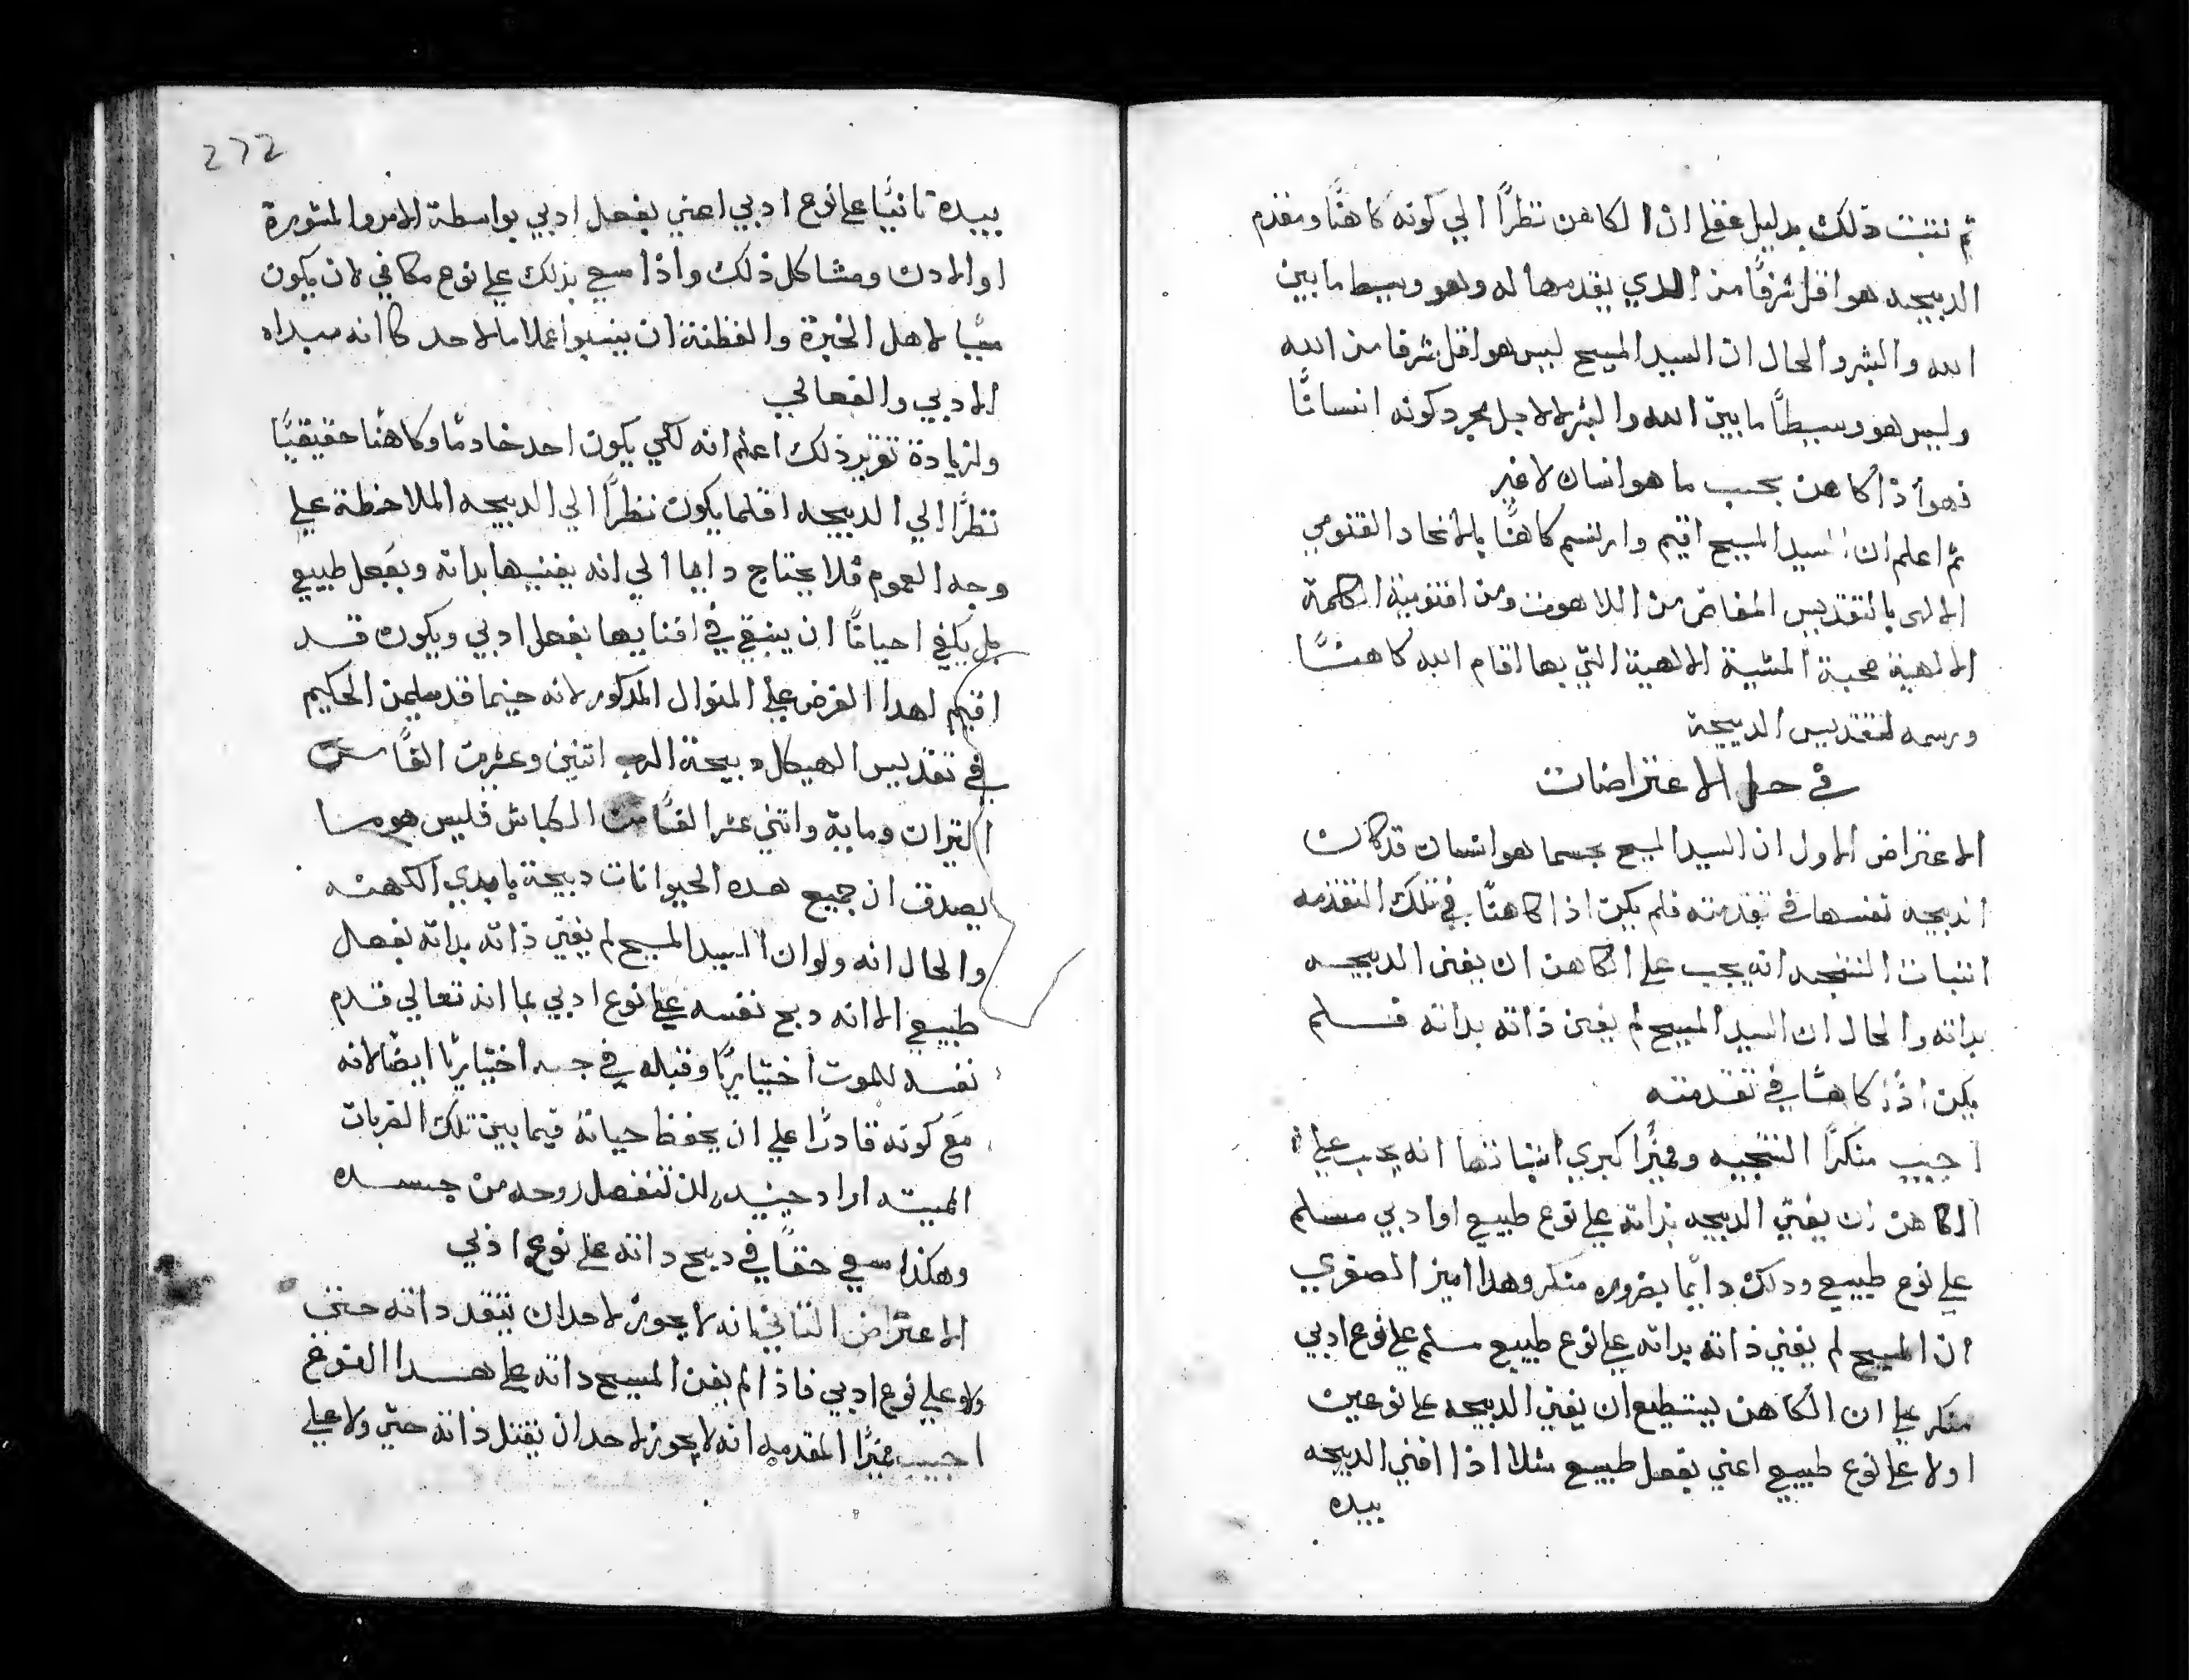 ثم نتبت دلك بدليل عقلي ان الكاهن نظرًا الي كونه كاهنًا ومقدم
الدبيحه هو اقل شرفًا من الدي يقدمها له وهو وسيط ما بين
الله والبشر والحال ان السيد المسيح ليس هو اقل شرفا من الله
وليس هو وسيطًا ما بين الله والبشر الا لاجل مجرد كونه انسانًا
فهو اذًا كاهن بحسب ما هو انسان لا غير
ثم اعلم ان السيد المسيح اقيم وارتسم كاهنًا بالاتحاد القنومي
الالهي بالتقديس المفاض من اللاهوت ومن اقنومية الكلمة
الالهية محبة المشية الالهية التي بها اقام الله كاهنًا
ورسمه لتقديس الدبيحة
في حل الاعتراضات
الاعتراض الاول ان السيد المسيح بحسما هو انسان قد كان
الدبيحه نفسها في تقدمته فلم يكن اذا كاهنًا في تلك التقدمه
اتبات النتيجه انه يجب علي الكاهن ان يفني الدبيحه
بداته والحال ان السيد المسيح لم يفني ذاته بداته فلم
يكن اذًا كاهنًا في تقدمته
اجيب منكرًا النتيجيه ومميزًا كبري اتباتها انه يجب علي
الكاهن ان يفني الدبيحه بداته علي نوع طبيعي او ادبي مسلم
علي نوع طبيعي ودلك دايمًا بضروره منكر وهدا اميز الصغري
ان المسيح لم يفني ذاته بداته علي نوع طبيعي مسلم علي نوع ادبي
منكر علي ان الكاهن يستطيع ان يفني الدبيحه علي نوعين
اولا علي نوع طبيعي اعني بفعل طبيعي مثلا اذا افني الدبيحه
بيده
272
بيده تانيًا علي نوع ادبي اعني بفعل ادبي بواسطة الامر والمشورة
او الادن ومشاكل ذلك واذا سعي بذلك علي نوع مكافي لان يكون
سببًا لاهل الخبرة والفطنة ان ينسبوا عملا ما لاحد كانه مبداه
الادبي والفعالي
ولزيادة تقرير ذلك اعلم انه لكي يكون احد خادمًا وكاهنًا حقيقيًا
نظرًا الي الدبيحه اقلما يكون نظرًا الي الدبيحه الملاحظة علي
وجه العموم فلا يحتاج دايما الي انه يفنيها بداته وبفعل طبيعي
بل يكفي احيانًا ان يسعي في افنايها بفعل ادبي ويكون قد
اقيم لهدا الغرض علي المنوال المدكور لانه حينما قدم سليمن الحكيم
في تقديس الهيكل دبيحة الرب اتنين وعشرين الفًا من
التيران وماية واتني عشر الفًا من الكباش فليس هو مما
يصدق ان جميع هده الحيوانات دبيحة بايدي الكهنه
والحال انه ولو ان السيد المسيح لم يفني ذاته بداته بفعل
طبيعي الا انه دبح نفسه علي نوع ادبي بما انه تعالي قدم
نفسه للموت اختياريًا وقبله في جسد اختياريًا ايضًا لانه
مع كونه قادرًا علي ان يحفظ حياته فيما بين تلك الضربات
المميته اراد حينيد ان تنفصل روحه من جسده
وهكذا سعي حقًا في دبح داته علي نوع ادبي
الاعتراض التاني انه لا يجوز لاحد ان يفقد داته حتي
ولا علي نوع ادبي فاذا لم يفن المسيح داته علي هدا النوع
اجيب مميزًا المقدمه انه لا يجوز لاحد ان يقتل ذاته حتي ولا علي